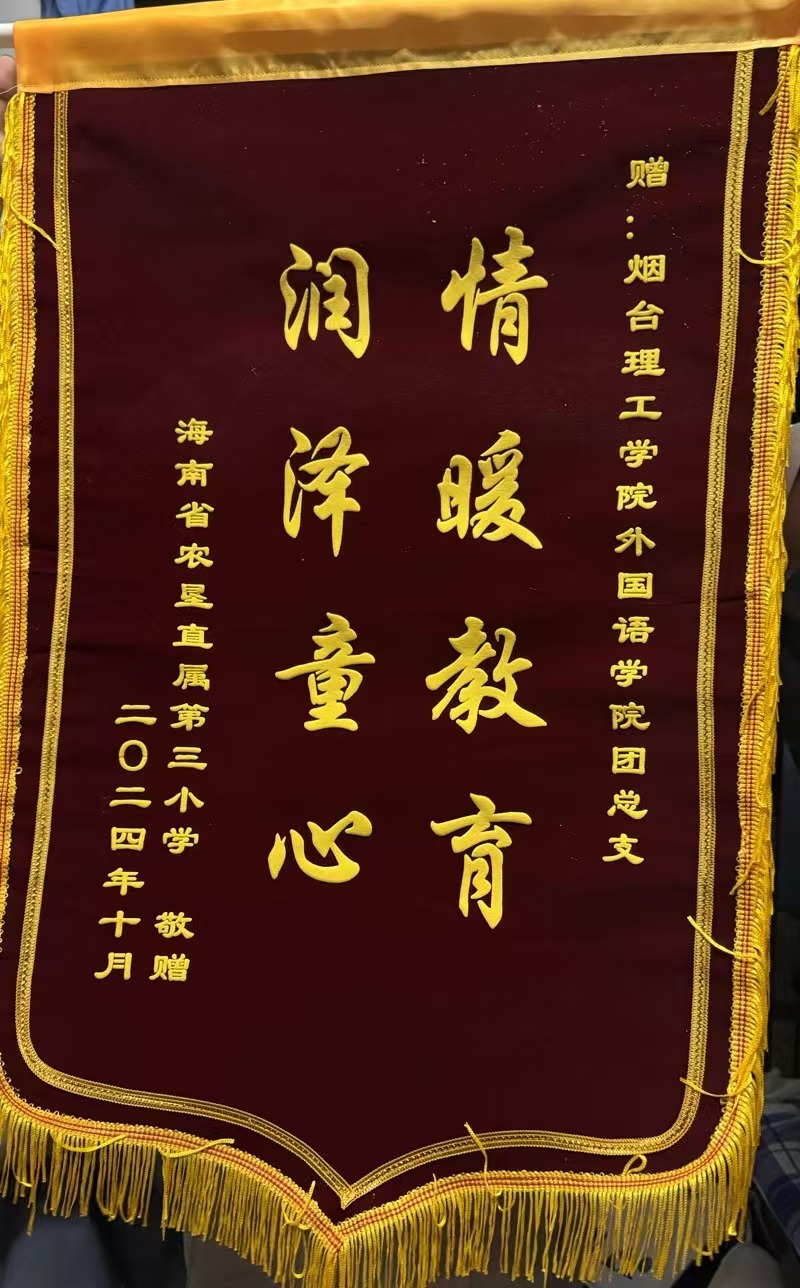 赠：烟台理工学院外国语学院团总支
情暖教育
润泽童心
海南省农垦直属第三小学 敬赠
二〇二四年十月